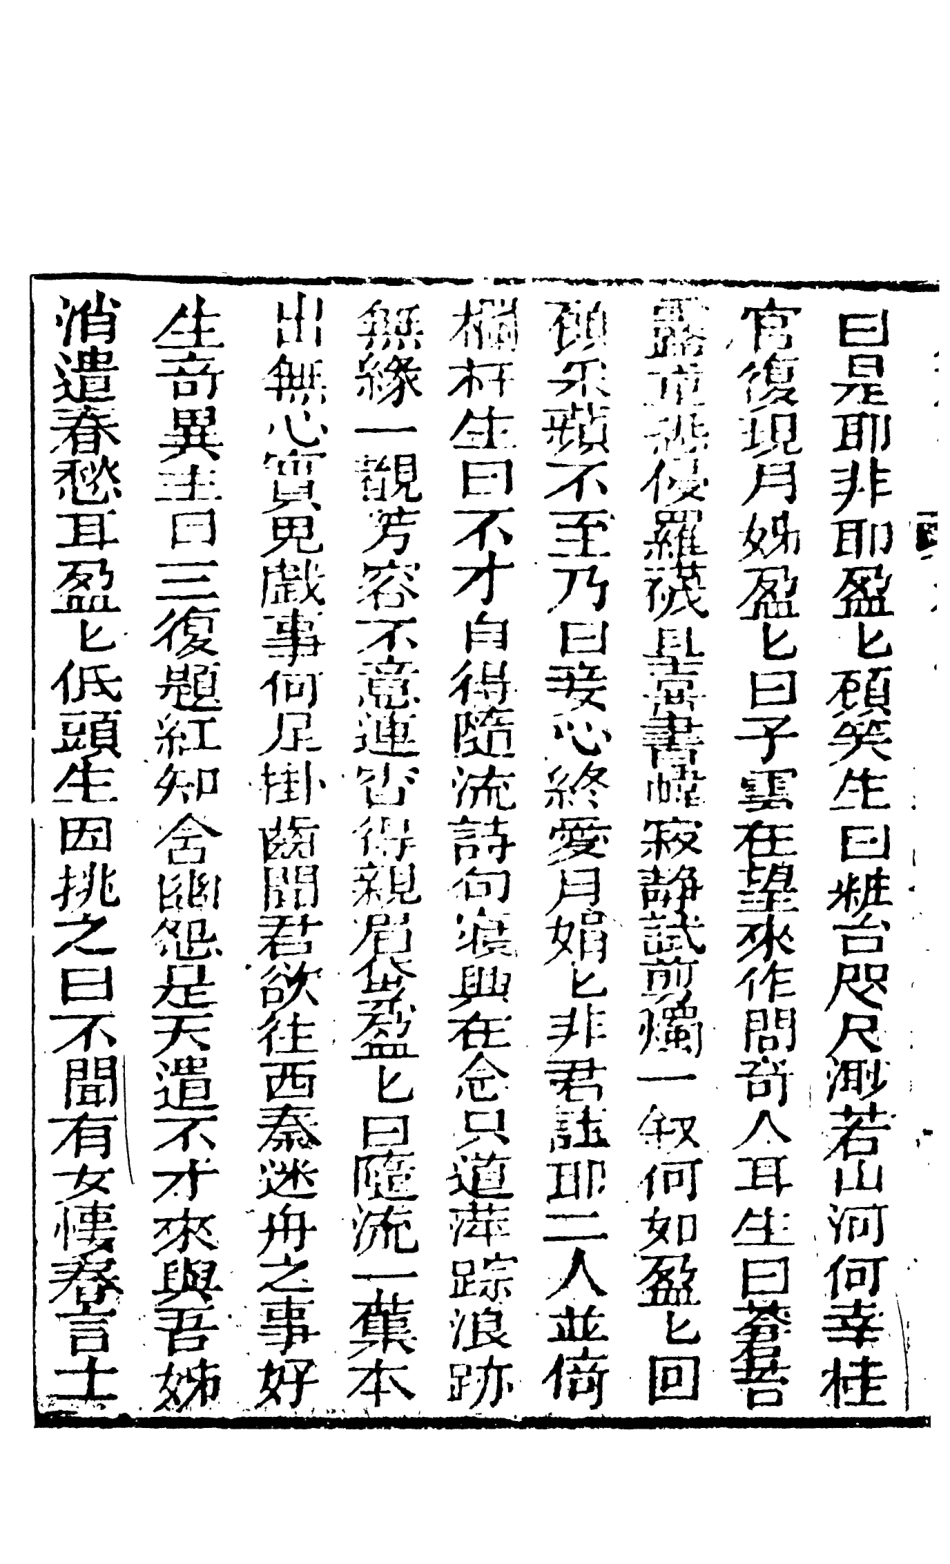 曰是耶非耶盈匕顧笑生曰粧台咫尺渺若山河何幸桂
宮復現月姊盈匕曰子雲在望來作問奇人耳生曰蒼苔
露重愁侵羅襪且喜書幃寂靜試剪燭一叙何如盈匕回
頭采蘋不至乃曰妾心終愛月娟匕非君誑耶二人並倚
欄杆生曰不才自得隨流詩句寤興在念只道萍踪浪跡
無緣一覩芳容不意蓮峕得親眉黛盈匕曰隨流一葉本
出無心實兒戲事何足掛齒聞君欲往西秦迷舟之事好
生奇異生曰三復題紅知含幽怨是天遣不才來與吾姊
消遣春愁耳盈匕低頭生因挑之曰不聞有女懷春言士